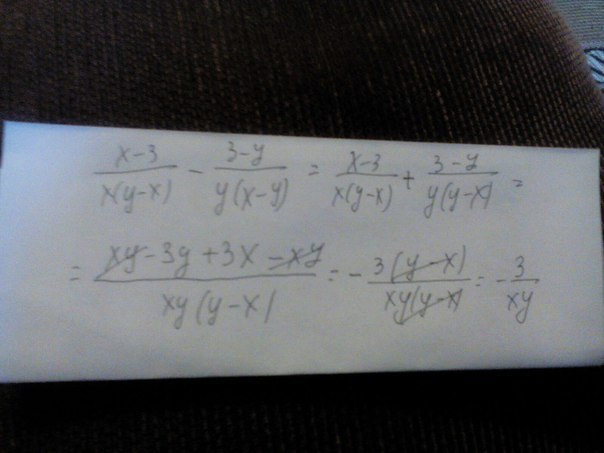 (x-3)/(x(y-x)) - (3-y)/(y(x-y)) = (x-3)/(x(y-x)) + (3-y)/(y(y-x)) =
= (xy-3y+3x-xy)/(xy(y-x)) = - (3(y-x))/(xy(y-x)) = - 3/(xy)